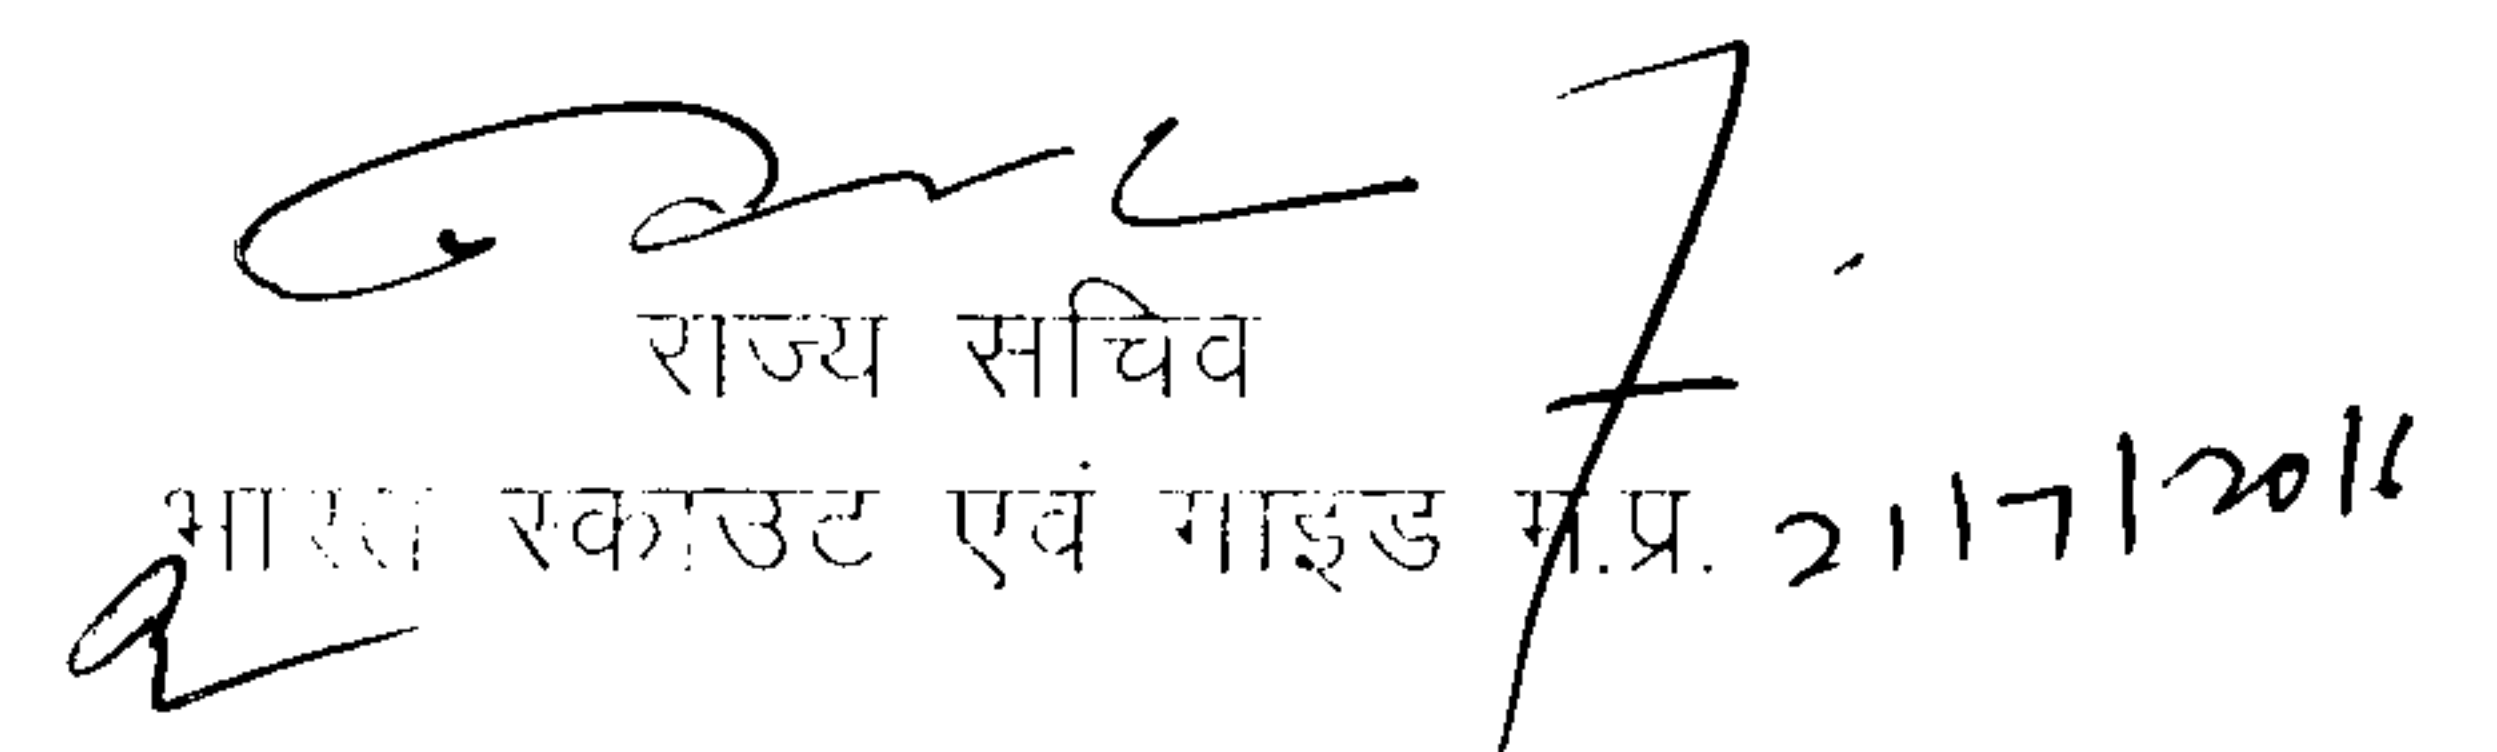 राज्य सचिव
भारत स्काउट एवं गाइड म.प्र. 21/7/2016